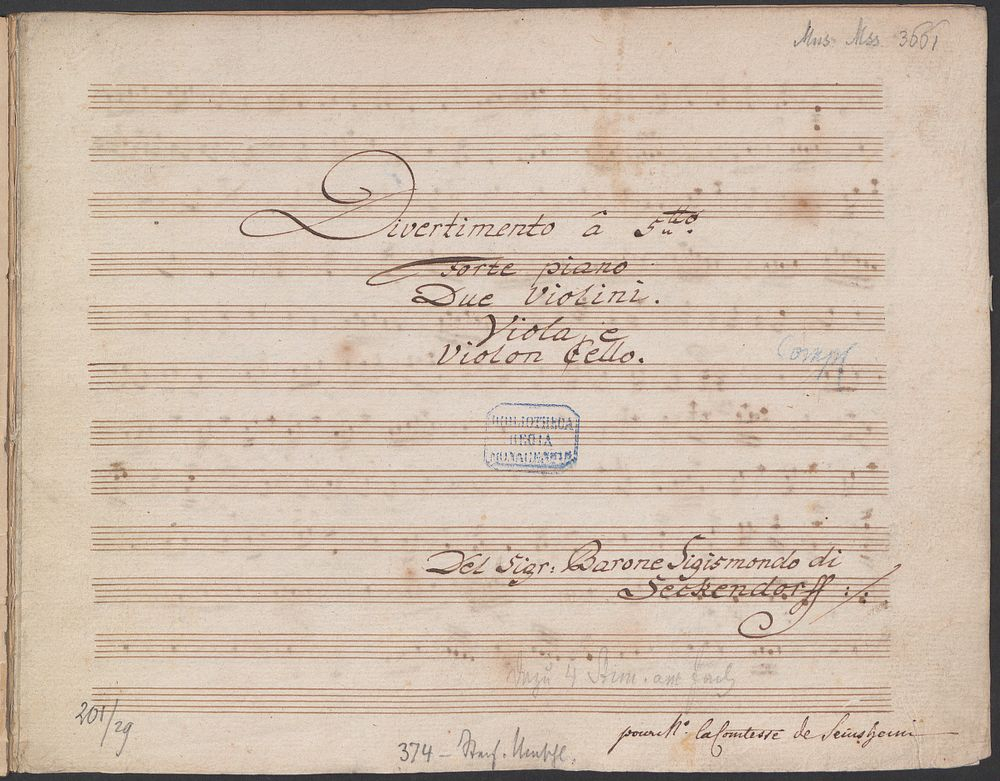 Mus. Mss. 3661
Divertimento â 5tto.
Forte piano
Due Violini.
Viola e
Violon Cello.
Comp
BIBLIOTHECA
REGIA
MONACENSIS
Del Sigr: Barone Sigismondo di
Seckendorff :/:
Dazu 4 Stim. am
201/29
374 –
pour la Comtesse de Seinsheim